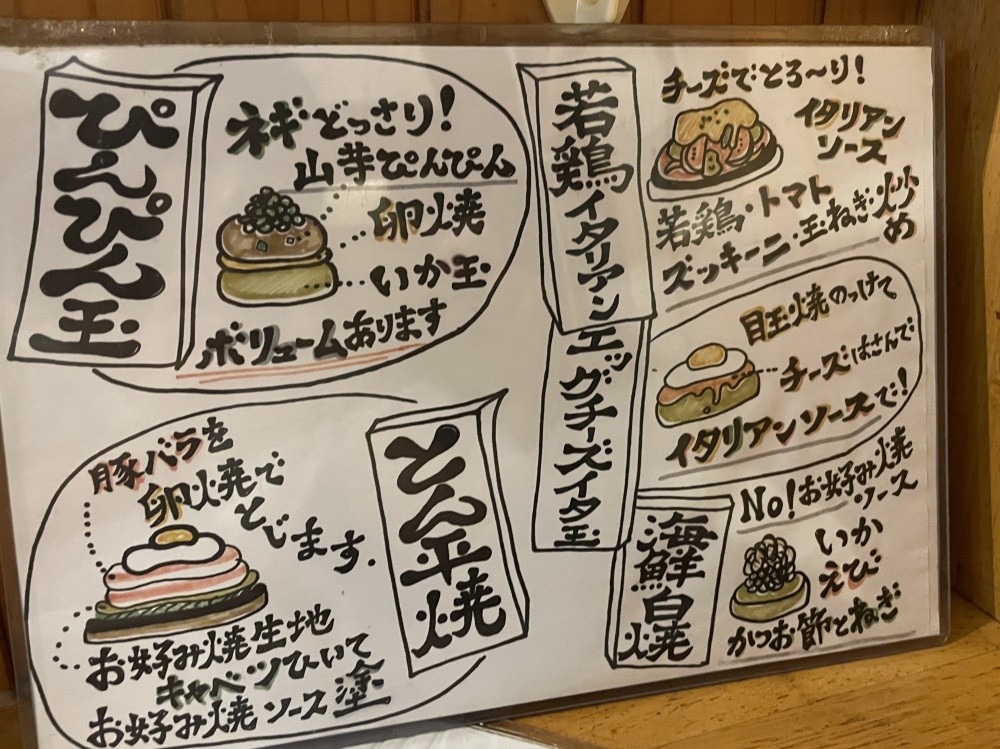 ぴんぴん玉
ネギどっさり!
山芋ぴんぴん
卵焼
いか玉
ボリュームあります
若鶏イタリアン
チーズでとろ〜り!
イタリアン
ソース
若鶏・トマト
ズッキーニ・玉ねぎ・炒め
エッグチーズイタ玉
目玉焼のっけて
チーズはさんで
イタリアンソースで!
とん平焼
豚バラを
卵焼で
とじます.
お好み焼生地
キャベツひいて
お好み焼ソース塗
海鮮白焼
No!お好み焼
ソース
いか
えび
かつお節とねぎ